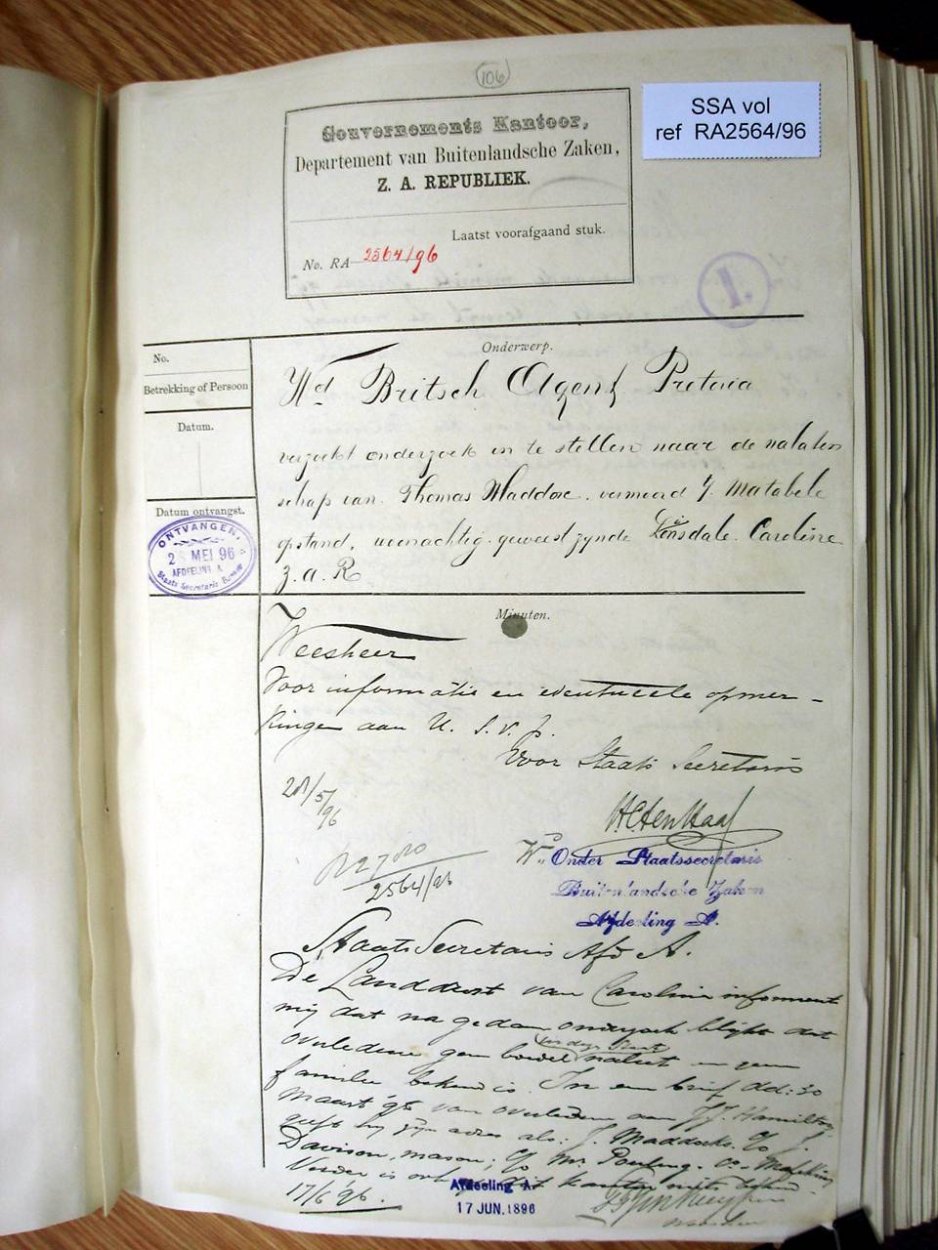 106
SSA vol
ref RA2564/96
Gouvernements Kantoor,
Departement van Buitenlandsche Zaken,
Z. A. REPUBLIEK.
Laatst voorafgaand stuk.
No. RA 2564/96
1.
No.
Betrekking of Persoon
Datum.
Datum ontvangst.
ONTVANGEN,
MEI 96
AFDEELING A.
Staats Secretaris Bureau
Onderwerp.
Wd Britsch Agent Pretoria
verzoekt onderzoek in te stellen naar de nalaten
schap van Thomas Maddox. vermoord Matabele
opstand, woonachtig geweest zynde Carolina
Z. A. R
Minuten.
Weesheer
Voor informatie en eventueele opmer-
kingen aan U. S.V.P.
Voor Staats Secretaris
28/5/96
Wd Onder Staatssecretaris
Buitenlandsche Zaken
Afdeeling A.
2564/96
Staats Secretaris Afd A.
De Landdrost van Carolina informeert
mij dat na gedaan onderzoek blijkt dat
overledene geen boedel in deze Staat naliet en geen
familie bekend is. In een brief dd: 30
Maart '96 van overledene aan J. Hamilton
geeft hij zijn adres als: J. Maddocks c/o J.
Davison, mason; c/o Mr. Pauling
Verder is
17/6/96.
Afdeeling A.
17 JUN. 1896